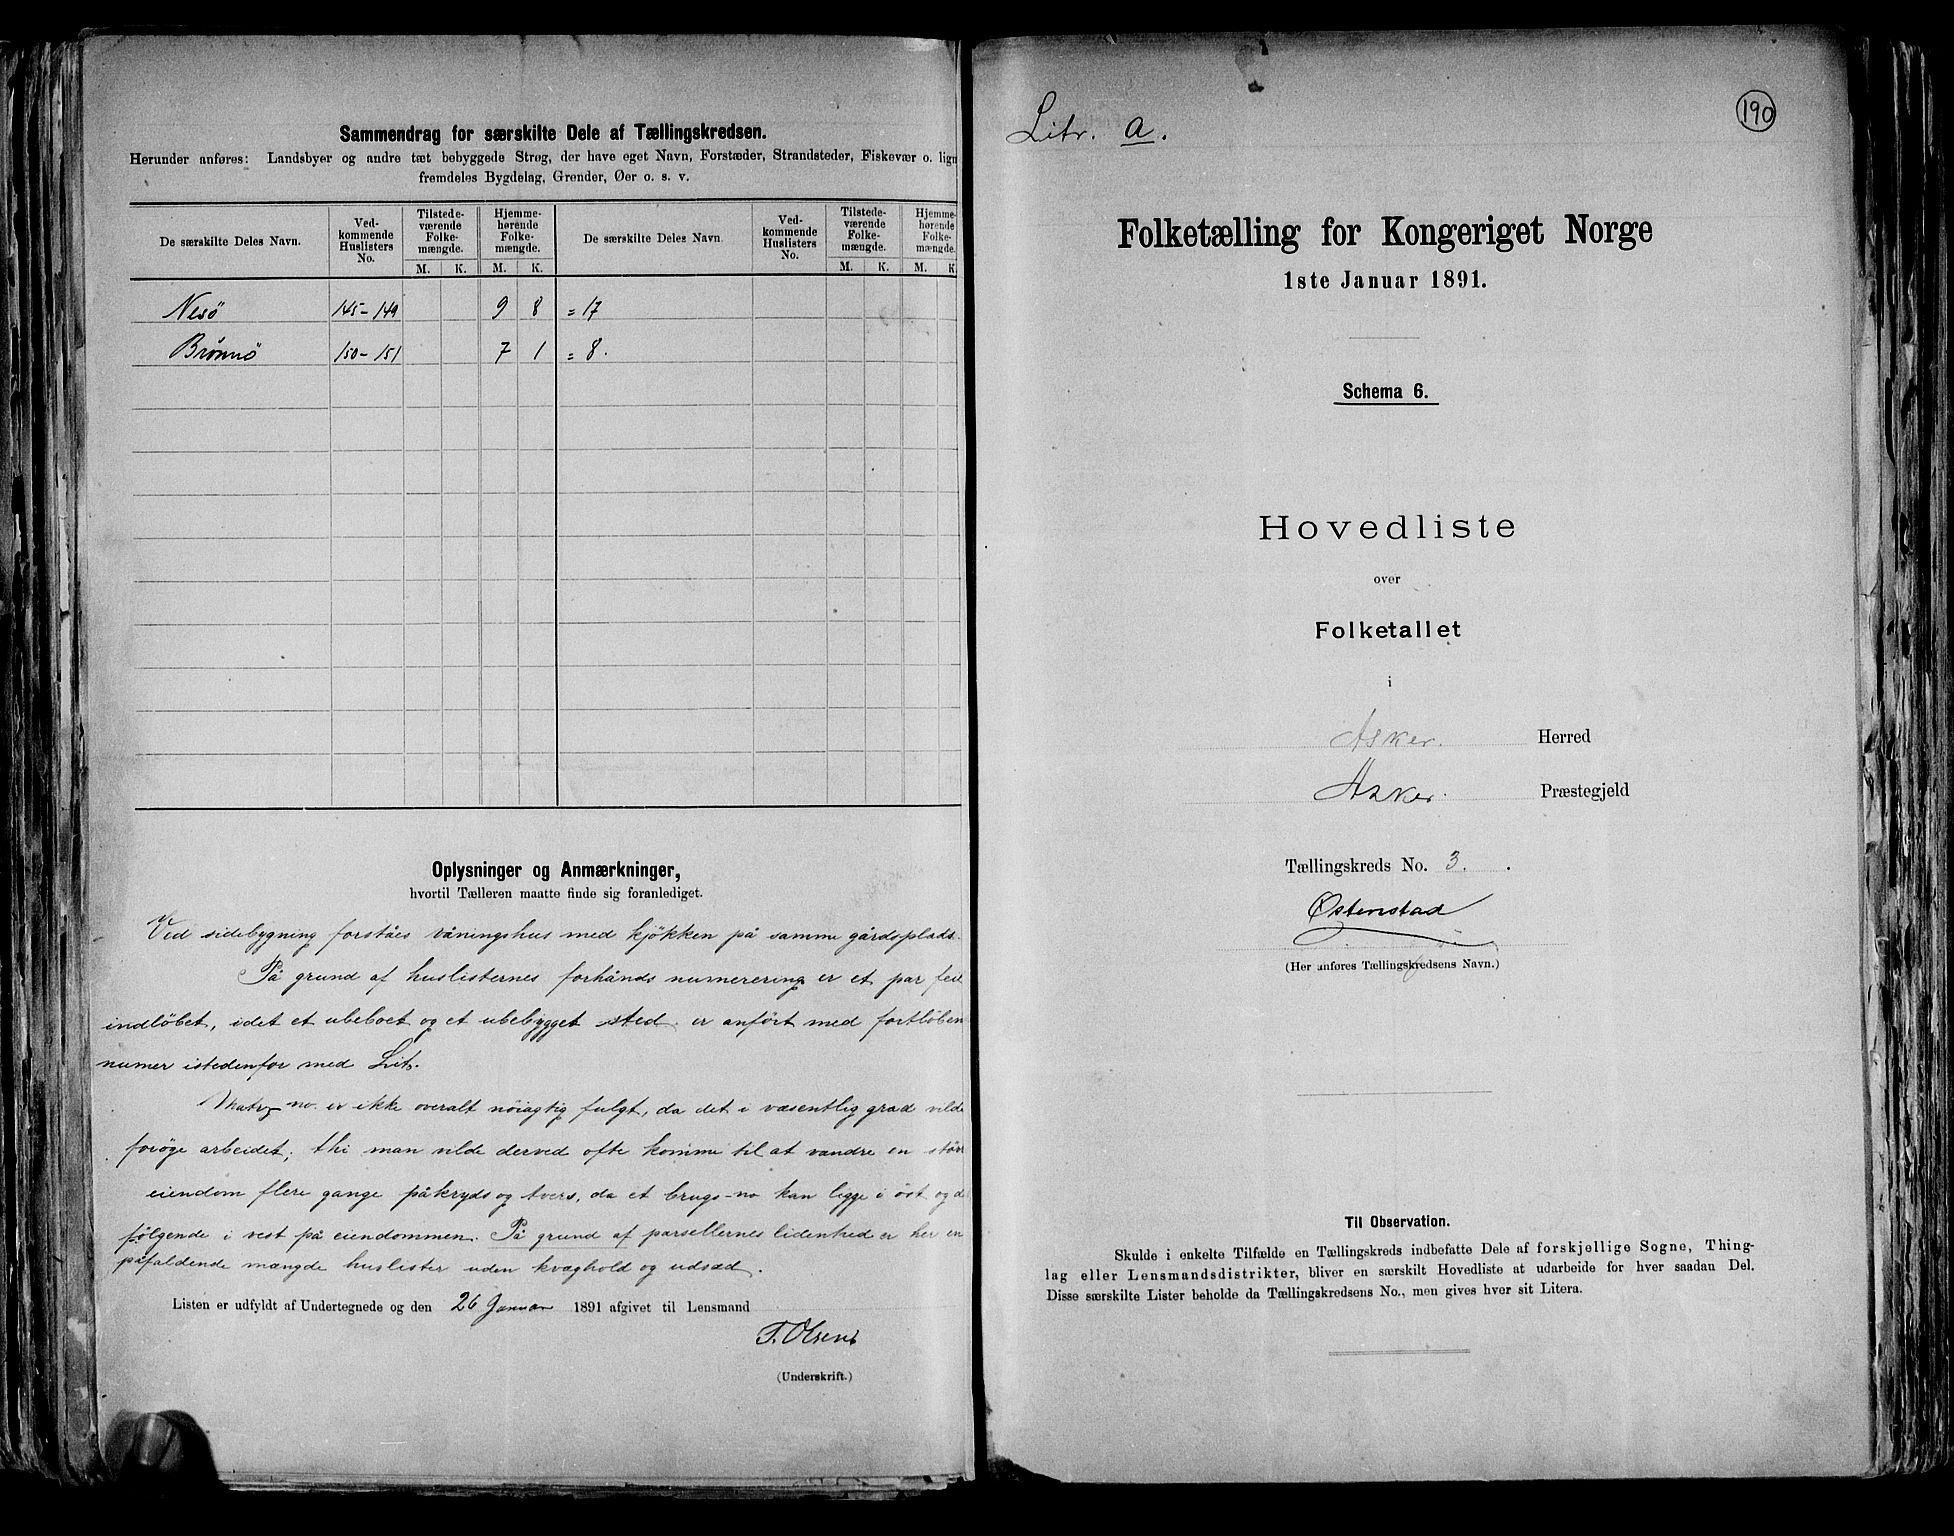 Sammendrag for særskilte Dele af Tællingskredsen.
Herunder anføres: Landsbyer og andre tæt bebyggede Strøg, der have eget Navn, Forstæder, Strandsteder, Fiskevær o. lign
fremdeles Bygdelag, Grender, Øer o. s. v.
De særskilte Deles Navn. Ved-kommende Huslisters No. Tilstede-værende Folke-mængde. Hjemme-hørende Folke-mængde. De særskilte Deles Navn. Ved-kommende Huslisters No. Tilstede-værende Folke-mængde. Hjemme-hørende Folke-mængde.
M. K. M. K. M. K. M. K.
Nesö 145-149 9 8 = 17
Brønnö 150-151 7 1 = 8.
Oplysninger og Anmærkninger,
hvortil Tælleren maatte finde sig foranlediget.
Ved sidebygning forståes våningshus med kjökken på samme gårdsplads.
På grund af huslisternes forhånds numerering er et par feil
indløbet, idet et ubeboet og et ubebygget sted er anført med fortløben
numer istedenfor med Litr.
Matr-no. er ikke overalt nöiagtig fulgt, da det i væsentlig grad vilde
foröge arbeidet; thi man vilde derved ofte komme til at vandre en störr
eiendom flere gange påkryds og tvers, da et brugs-no kan ligge i öst og d
fölgende i vest på eiendommen. På grund af parsellernes lidenhed er her en
påfaldende mængde huslister uden kvæghold og udsæd.
Listen er udfyldt af Undertegnede og den 26 Januar 1891 afgivet til Lensmand
T. Olsen
(Underskrift.)
190
Litr. a.
Folketælling for Kongeriget Norge
1ste Januar 1891.
Schema 6.
Hovedliste
over
Folketallet
i
Asker. Herred
Asker. Præstegjeld
Tællingskreds No. 3.
Østenstad
(Her anføres Tællingskredsens Navn.)
Til Observation.
Skulde i enkelte Tilfælde en Tællingskreds indbefatte Dele af forskjellige Sogne, Thing-
lag eller Lensmandsdistrikter, bliver en særskilt Hovedliste at udarbeide for hver saadan Del.
Disse særskilte Lister beholde da Tællingskredsens No., men gives hver sit Litera.